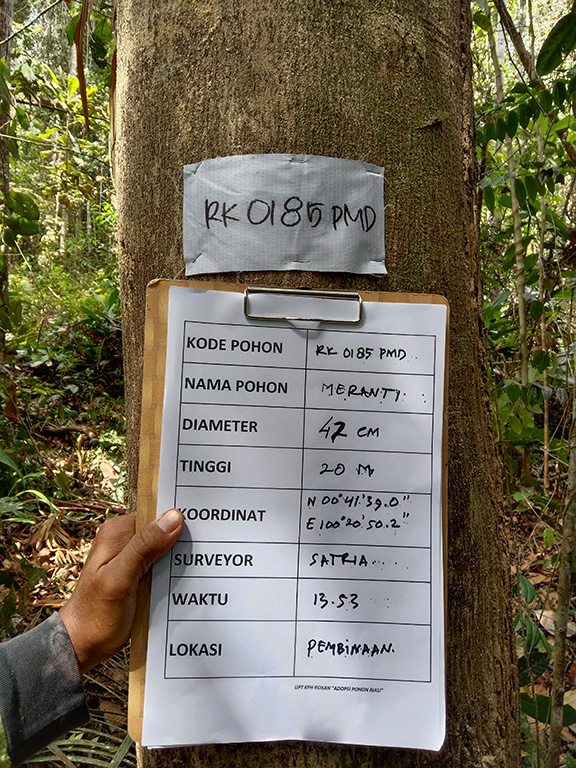 RK 0185 PMD
KODE POHON RK 0185 PMD
NAMA POHON MERANTI
DIAMETER 42 CM
TINGGI 20 M
KOORDINAT N 00°41'39.0"
E 100°20'50.2"
SURVEYOR SATRIA
WAKTU 13.53
LOKASI PEMBINAAN.
UPT KPH ROKAN "ADOPSI POHON RIAU"